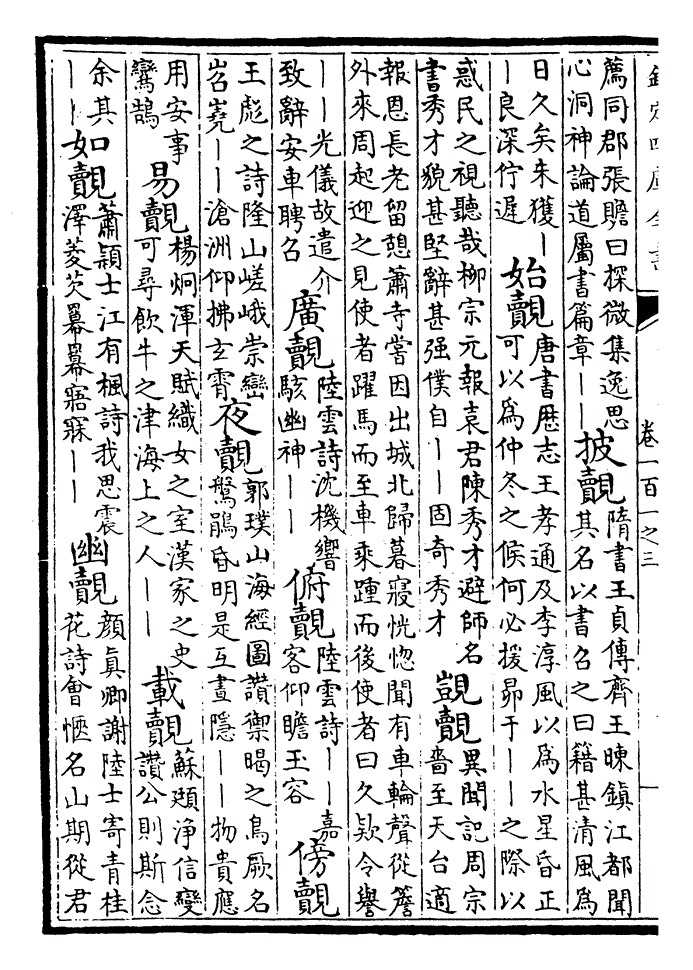 欽定四庫全書 卷一百一之三 一
薦同郡張贍曰探微集逸思
心洞神論道屬書篇章——
披覿
隋書王貞傳齊王暕鎮江都聞
其名以書召之曰籍甚清風為
日久矣未獲—
—良深佇遲
始覿
唐書歴志王孝通及李淳風以為水星昏正
可以為仲冬之候何必援昴于——之際以
惑民之視聽哉柳宗元報袁君陳秀才避師名
書秀才貌甚堅辭甚强僕自——固奇秀才
覬覿
異聞記周宗
嗇至天台適
報恩長老留憩蕭寺嘗因出城北歸暮寢恍惚聞有車輪聲從簷
外來周起迎之見使者躍馬而至車乘踵而後使者曰久欵令譽
——光儀故遣介
致辭安車聘召
廣覿
陸雲詩沈機響
駭幽神——
俯覿
陸雲詩——嘉
客仰瞻玉容
傍覿
王彪之詩隆山嵯峨崇巒
岧嶤——滄洲仰拂玄霄
夜覿
郭璞山海經圖讚禦暍之鳥厥名
鵑昏明是互晝隱——物貴應
用安事
鸞鵠
易覿
楊炯渾天賦織女之室漢家之史
可尋飲牛之津海上之人——
載覿
蘇頲淨信變
讚公則斯念
余其
——
如覿
蕭穎士江有楓詩我思震
澤菱芡羃羃寤寐——
幽覿
顔真卿謝陸士寄青桂
花詩會愜名山期從君